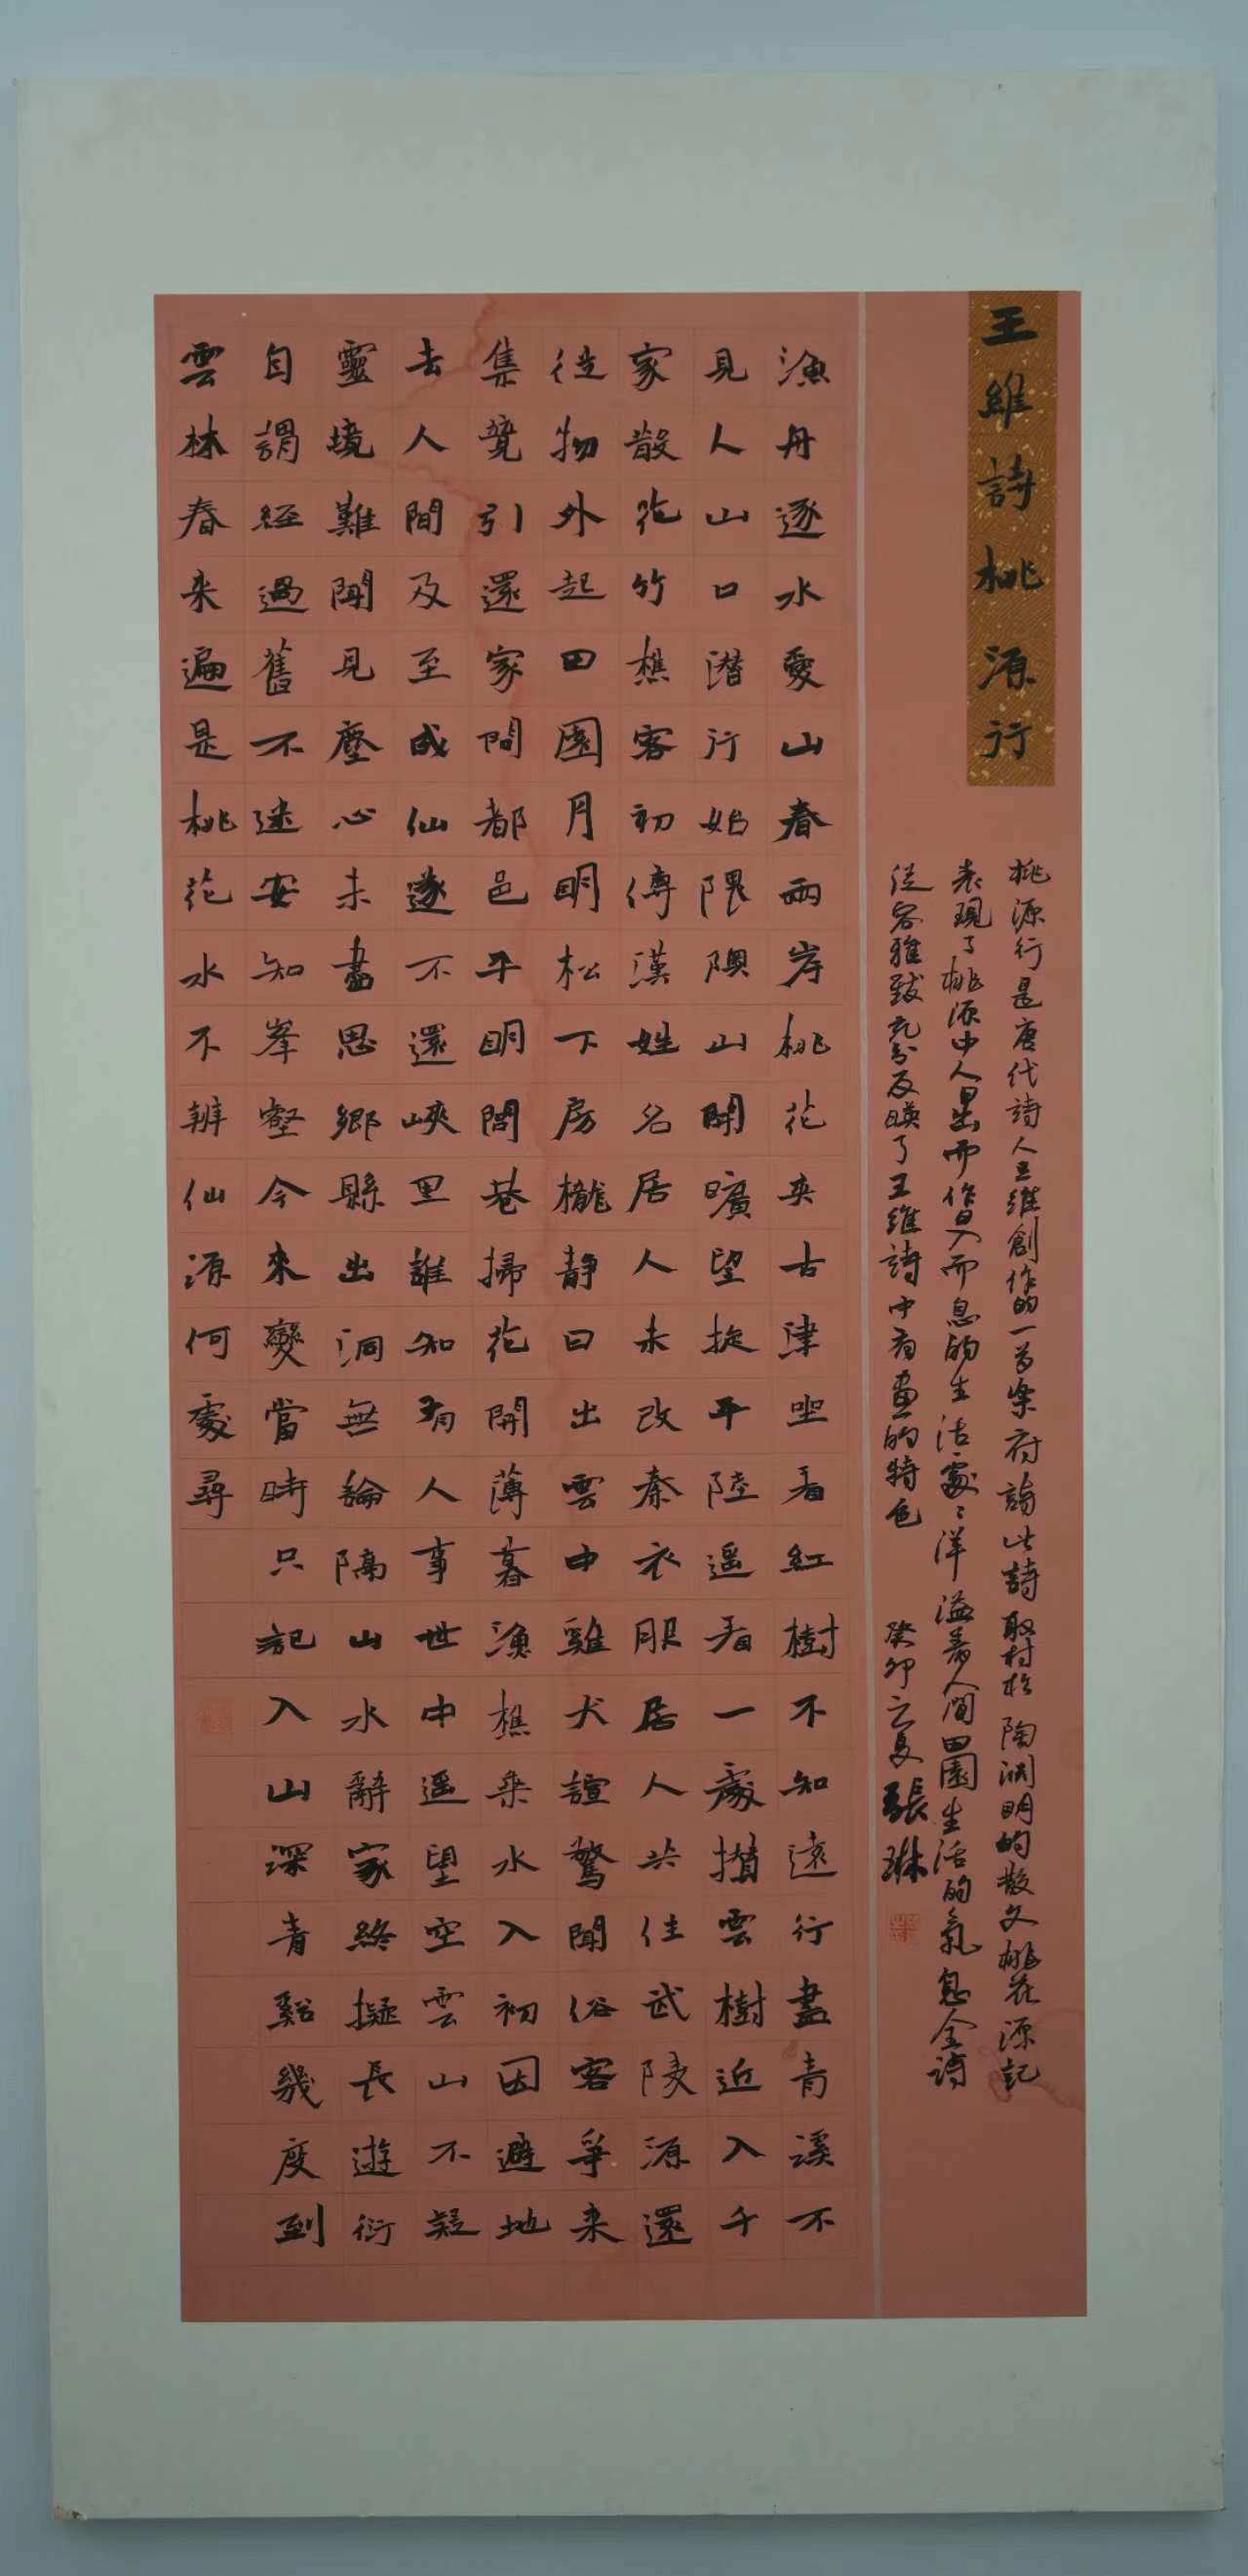 王維詩桃源行
桃源行是唐代詩人王維創作的一首樂府詩此詩取材於陶淵明的散文桃花源記
表現了桃源中人日出而作日入而息的生活處〻洋溢着人間田園生活的氣息全詩
從容雅致充分反映了王維詩中有畫的特色 癸卯之夏張琳
漁舟逐水愛山春兩岸桃花夾古津坐看紅樹不知遠行盡青溪不
見人山口潜行始隈隩山開曠望旋平陸遥看一處攅雲樹近入千
家散花竹樵客初傳漢姓名居人未改秦衣服居人共住武陵源還
從物外起田園月明松下房櫳静日出雲中雞犬諠驚聞俗客爭来
集競引還家問都邑平明閭巷掃花開薄暮漁樵乘水入初因避地
去人間及至成仙遂不還峽里誰知有人事世中遥望空雲山不疑
靈境難聞見塵心未盡思鄉縣出洞無論隔山水辭家終擬長遊衍
自謂經過舊不迷安知峯壑今來變當時只記入山深青谿幾度到
雲林春来遍是桃花水不辨仙源何處尋